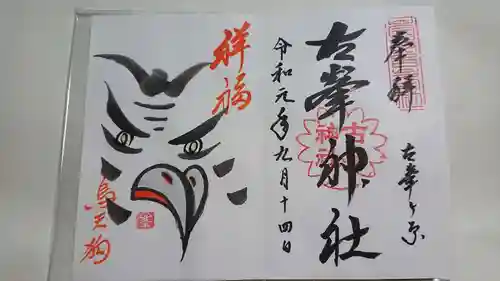 奉拝
古峯ヶ原
古峯神社
令和元年九月十四日
祥福
烏天狗